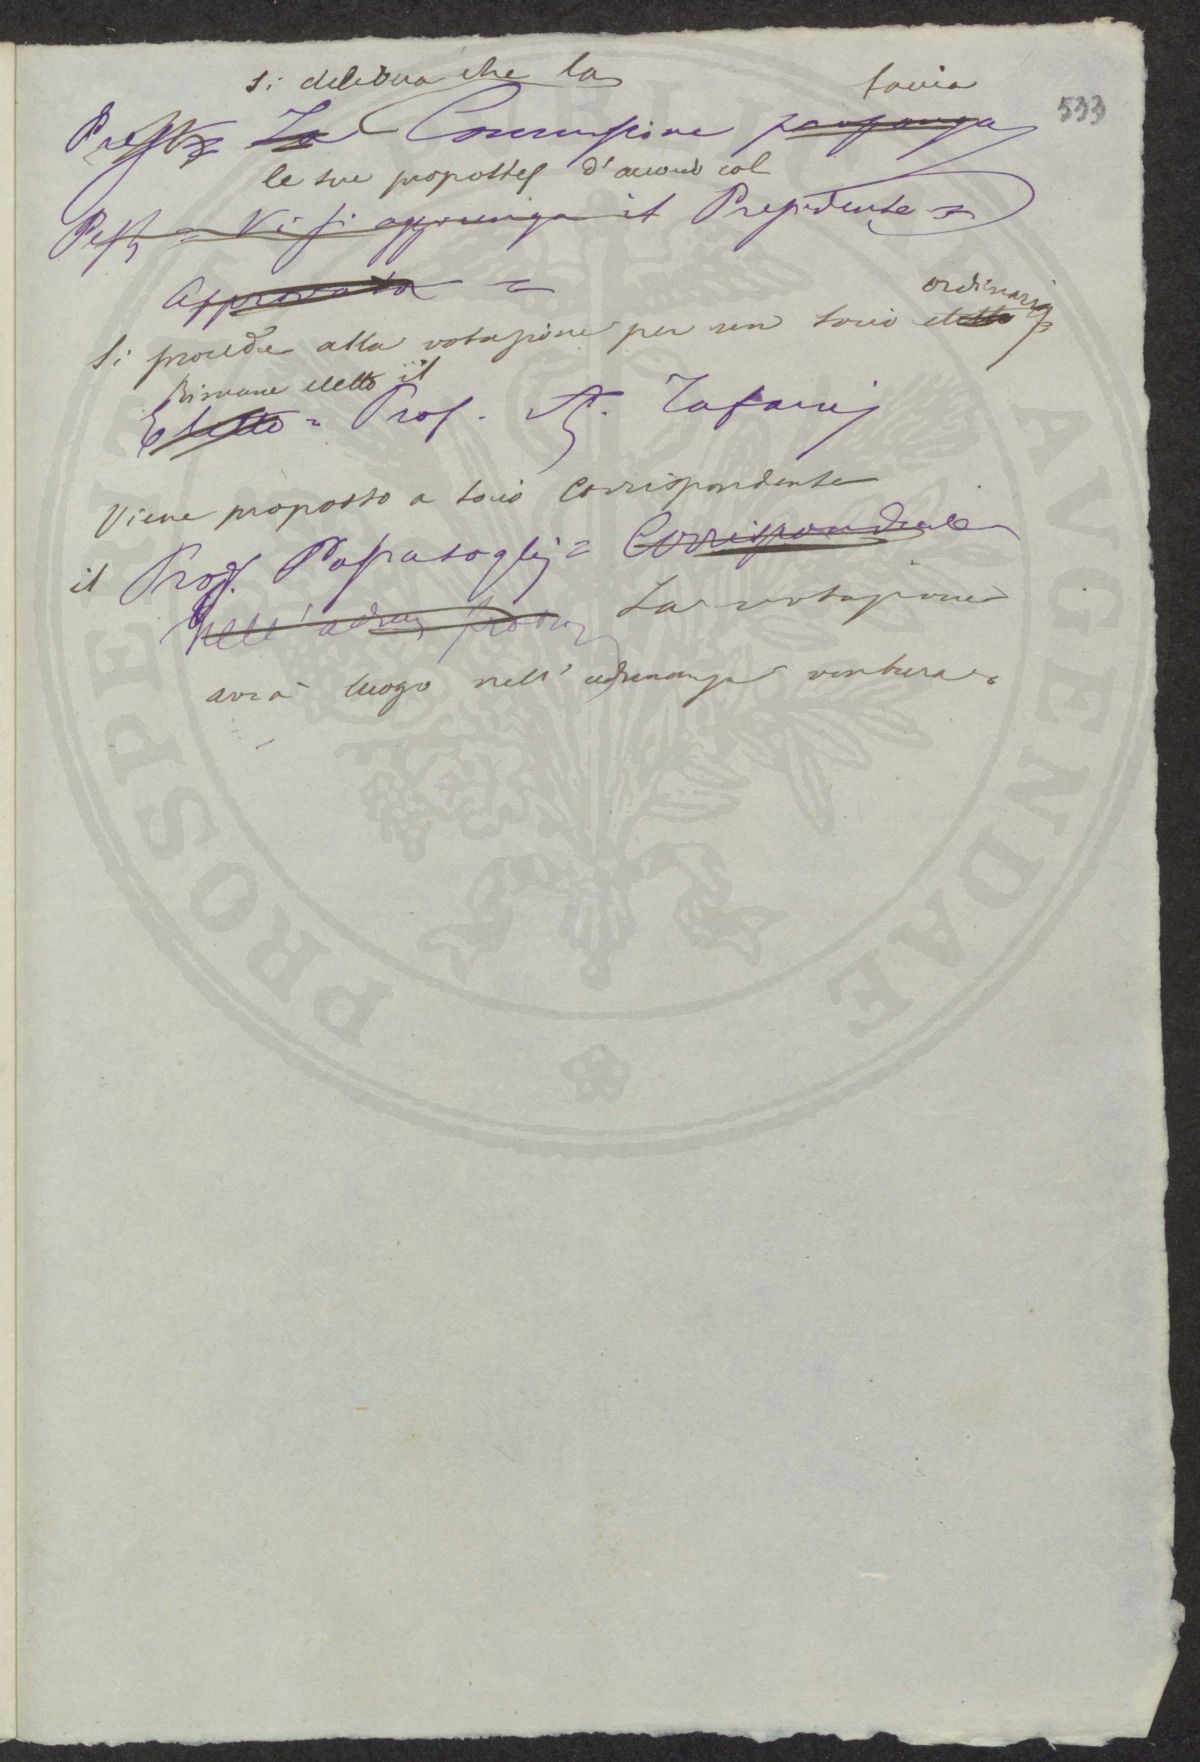 si delibera che la faccia
533
La Commissione proponga
le sue proposte d'accordo col
Vi si aggiunga il Presidente =
Approvato =
ordinario
Si procede alla votazione per un socio eletto
Rimane eletto il
Eletto = Prof. A. Tafani
Viene proposto a socio corrispondente
il Prof. Papasogli = Corrispondente
Nell' adun La votazione
avrà luogo nell' adunanza ventura.
PROSPERITATI PUBLICAE AUGENDAE